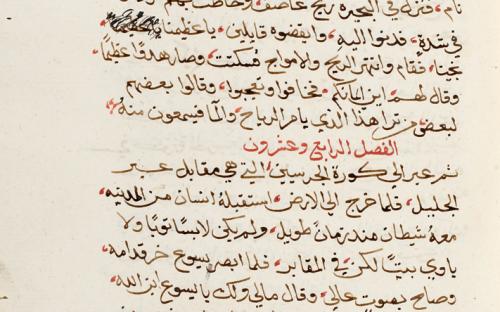 نام، فنزله في البحيره ريح عاصف
في شدة، فدنوا اليه وايقضوه قايلين، ياعظيمنا
نجينا، فقام وانتهر الريح والامواج فسكنت، وصار هدوًا عظيمًا،
وقال لهم اين ايمانكم، فخافوا وتعجبوا، وقالوا بعضهم
لبعض من ترا هذا الذي يامر الرياح، والما فيسمعون منه،
الفصل الرابع وعشرون
ثم عبر الي كورة الجرسيين، التي هي مقابل عبر
الجليل، فلما خرج الي الارض، استقبله انسان من المدينه،
معه شيطان منذ زمان طويل، ولم يكن لابسًا ثوبًا ولا
ياوي بيتًا لكن في المقابر، فلما ابصر يسوع خر قدامه،
وصاح بصوت عالي، وقال مالي ولك يا يسوع ابن الله